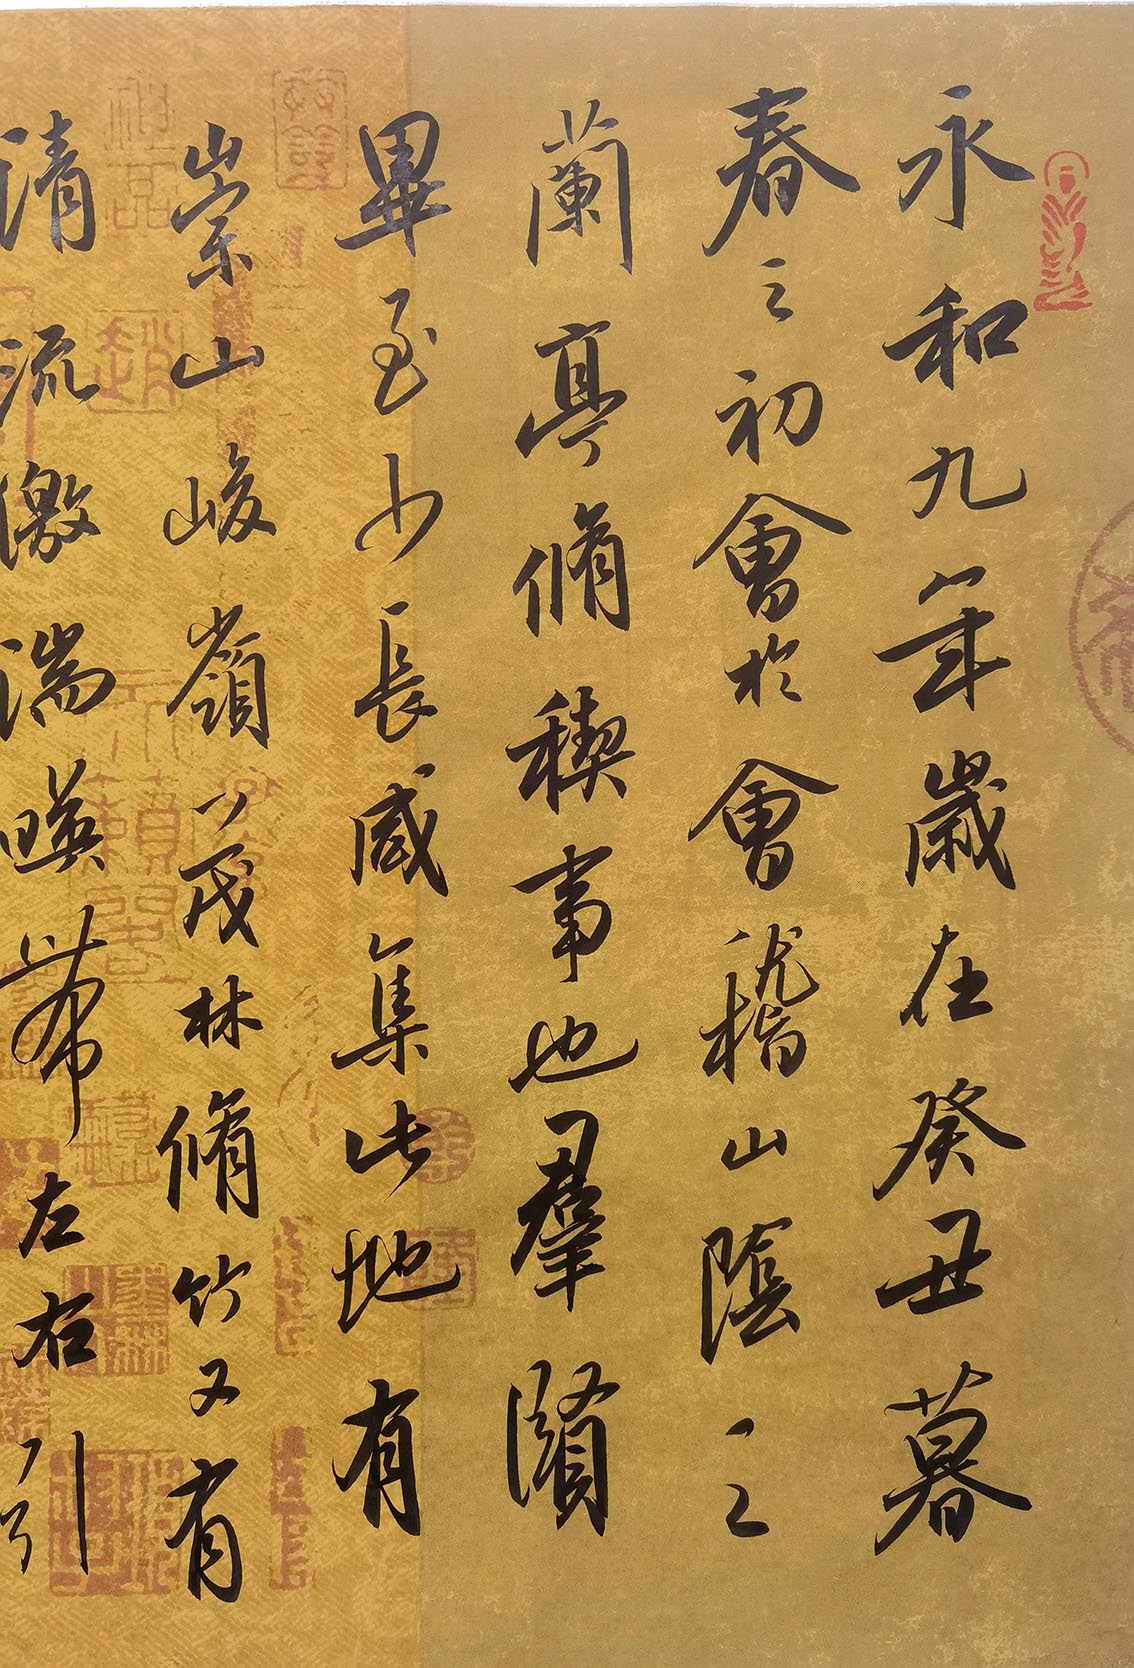 永和九年歲在癸丑暮
春之初會於會稽山陰之
蘭亭脩稧事也羣賢
畢至少長咸集此地有
崇山峻嶺茂林脩竹又有
清流激湍暎帶左右引